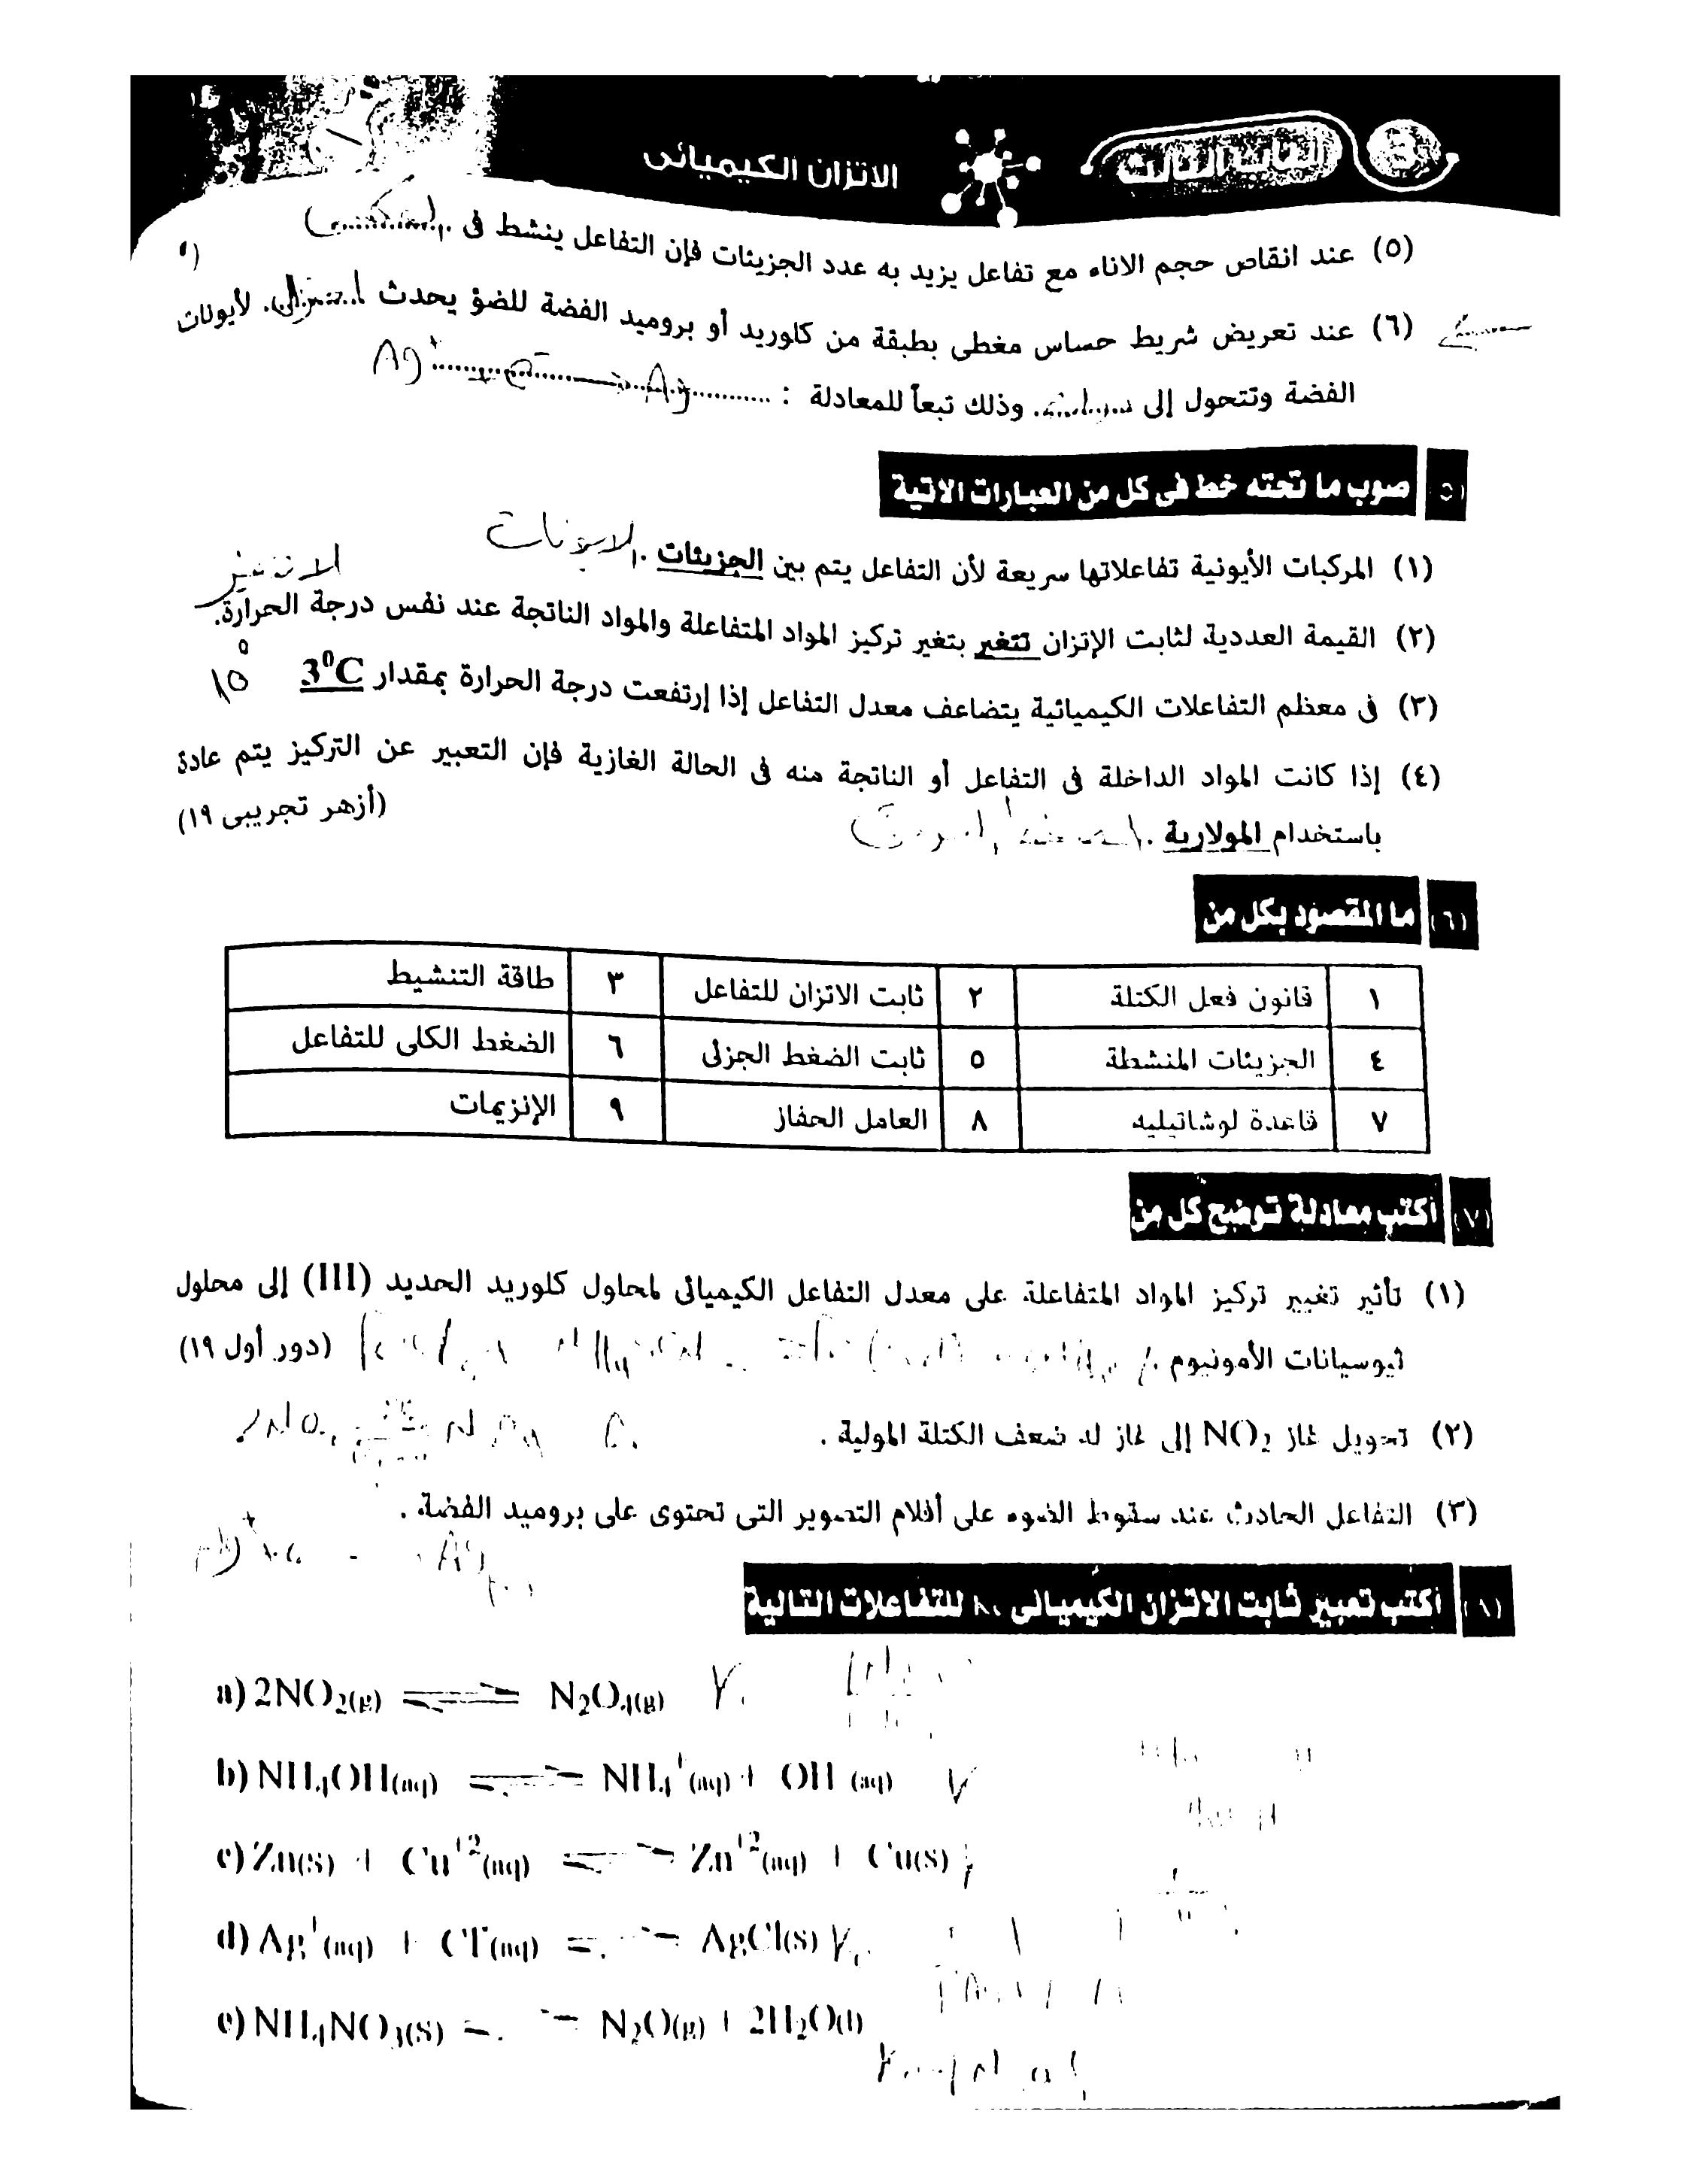 الباب الثالث 3
الاتزان الكيميائى
(٥) عند انقاص حجم الاناء مع تفاعل يزيد به عدد الجزيئات فإن التفاعل ينشط فى
(٦) عند تعريض شريط حساس مغطى بطبقة من كلوريد أو بروميد الفضة للضؤ يحدث اختزال. لأيونات
الفضة وتتحول إلى ........ وذلك تبعاً للمعادلة : Ag⁺ + e⁻ → Ag
(٥) صوب ما تحته خط فى كل من العبارات الاتية
(١) المركبات الأيونية تفاعلاتها سريعة لأن التفاعل يتم بين الجزيئات . الايونات
(٢) القيمة العددية لثابت الإتزان تتغير بتغير تركيز المواد المتفاعلة والمواد الناتجة عند نفس درجة الحرارة. لا تتغير
(٣) فى معظم التفاعلات الكيميائية يتضاعف معدل التفاعل إذا إرتفعت درجة الحرارة بمقدار 3⁰C 10°
(٤) إذا كانت المواد الداخلة فى التفاعل أو الناتجة منه فى الحالة الغازية فإن التعبير عن التركيز يتم عادة
باستخدام المولارية . (أزهر تجريبى ١٩)
(٦) ما المقصود بكل من
١ قانون فعل الكتلة ٢ ثابت الاتزان للتفاعل ٣ طاقة التنشيط
٤ الجزيئات المنشطة ٥ ثابت الضغط الجزئى ٦ الضغط الكلى للتفاعل
٧ قاعدة لوشاتيليه ٨ العامل الحفاز ٩ الإنزيمات
(٧) أكتب معادلة توضح كل من
(١) تأثير تغيير تركيز المواد المتفاعلة على معدل التفاعل الكيميائى لمحلول كلوريد الحديد (III) إلى محلول
ثيوسيانات الأمونيوم . (دور أول ١٩)
(٢) تحويل غاز NO₂ إلى غاز له ضعف الكتلة المولية .
(٣) التفاعل الحادث عند سقوط الضوء على أفلام التصوير التى تحتوى على بروميد الفضة .
(٨) أكتب تعبير ثابت الاتزان الكيميائى Kc للتفاعلات التالية
a) 2NO₂(g) ⇌ N₂O₄(g)
b) NH₄OH(aq) ⇌ NH₄⁺(aq) + OH⁻(aq)
c) Zn(s) + Cu⁺²(aq) ⇌ Zn⁺²(aq) + Cu(s)
d) Ag⁺(aq) + Cl⁻(aq) ⇌ AgCl(s)
e) NH₄NO₃(s) ⇌ N₂O(g) + 2H₂O(l)